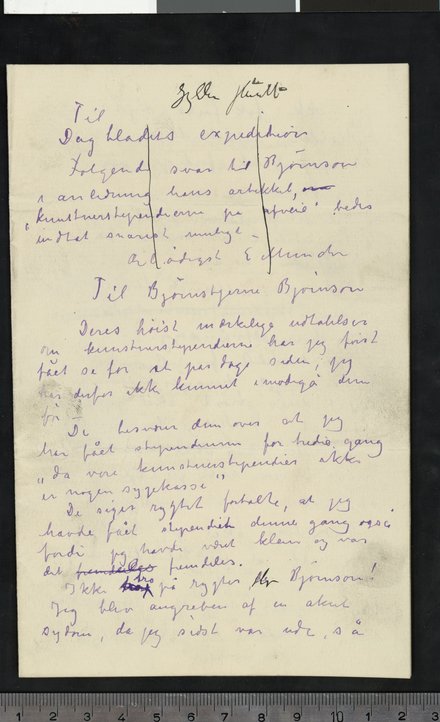 Til
Dagbladets expedition
Følgende svar til Bjørnson
i anledning hans artikkel,
"kunstnerstipendierne på afveie" bedes
indtat snarest muligt –
Ærbødigst E Munch
Til Bjørnstjerne Bjørnson
Deres høist mærkelige udtalelser
om kunstnerstipendierne har jeg først
fået se for et par dage siden, jeg
har derfor ikke kunnet imødegå dem
før –
De besværer dem over at jeg
har fået stipendium for tredie gang
"da vore kunstnerstipendier ikke
er nogen sygekasse"
De siger rygtet fortalte, at jeg
havde fået stipendiet denne gang også
fordi jeg havde været klein og var
det fremdeles fremdeles.
Ikke tro på rygter Hr Bjørnson!
Jeg blev angreben af en akut
sygdom, da jeg sidst var ude, så